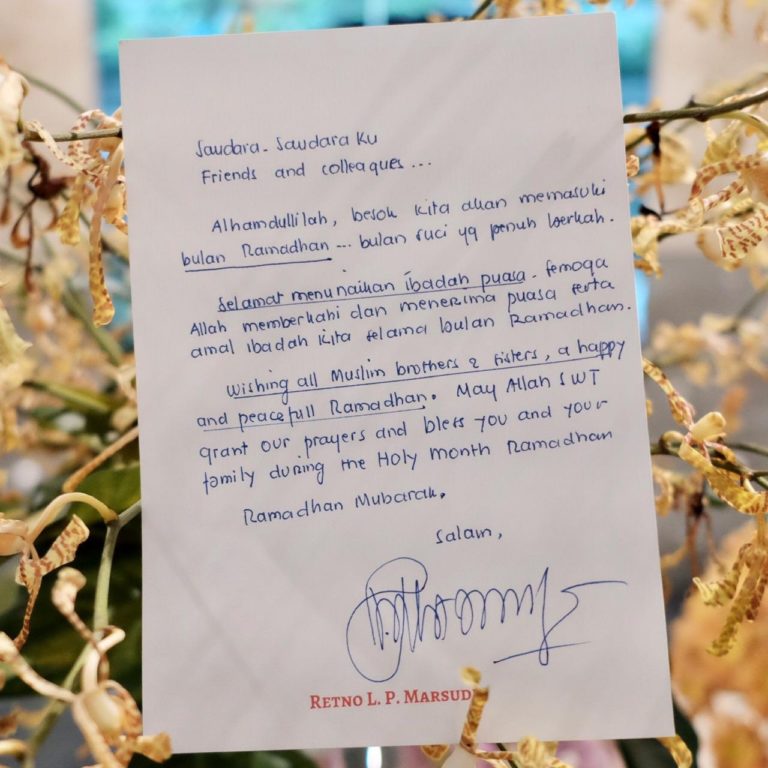 Saudara-Saudara Ku
Friends and colleagues ...
Alhamdullilah, besok kita akan memasuki
bulan Ramadhan ... bulan suci yg penuh berkah.
Selamat menunaikan ibadah puasa. Semoga
Allah memberkahi dan menerima puasa serta
amal ibadah kita selama bulan Ramadhan.
Wishing all Muslim brothers & sisters, a happy
and peacefull Ramadhan. May Allah SWT
grant our prayers and bless you and your
family during the Holy month Ramadhan
Ramadhan Mubarak.
Salam,
RETNO L. P. MARSUDI